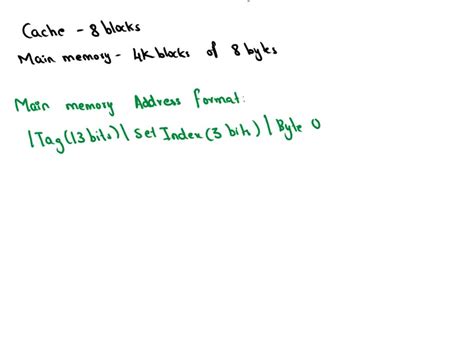 Cache - 8 blocks
Main memory - 4K blocks of 8 bytes
Main memory Address format:
| Tag (13 bits) | Set Index (3 bits) | Byte O